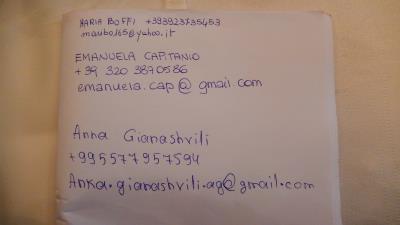 MARIA BOFFI +393923735453
maubo165@yahoo.it
EMANUELA CAPITANIO
+39 320 3870586
emanuela.cap@gmail.com
Anna Gianashvili
+995577957594
Anka.gianashvili.ag@gmail.com